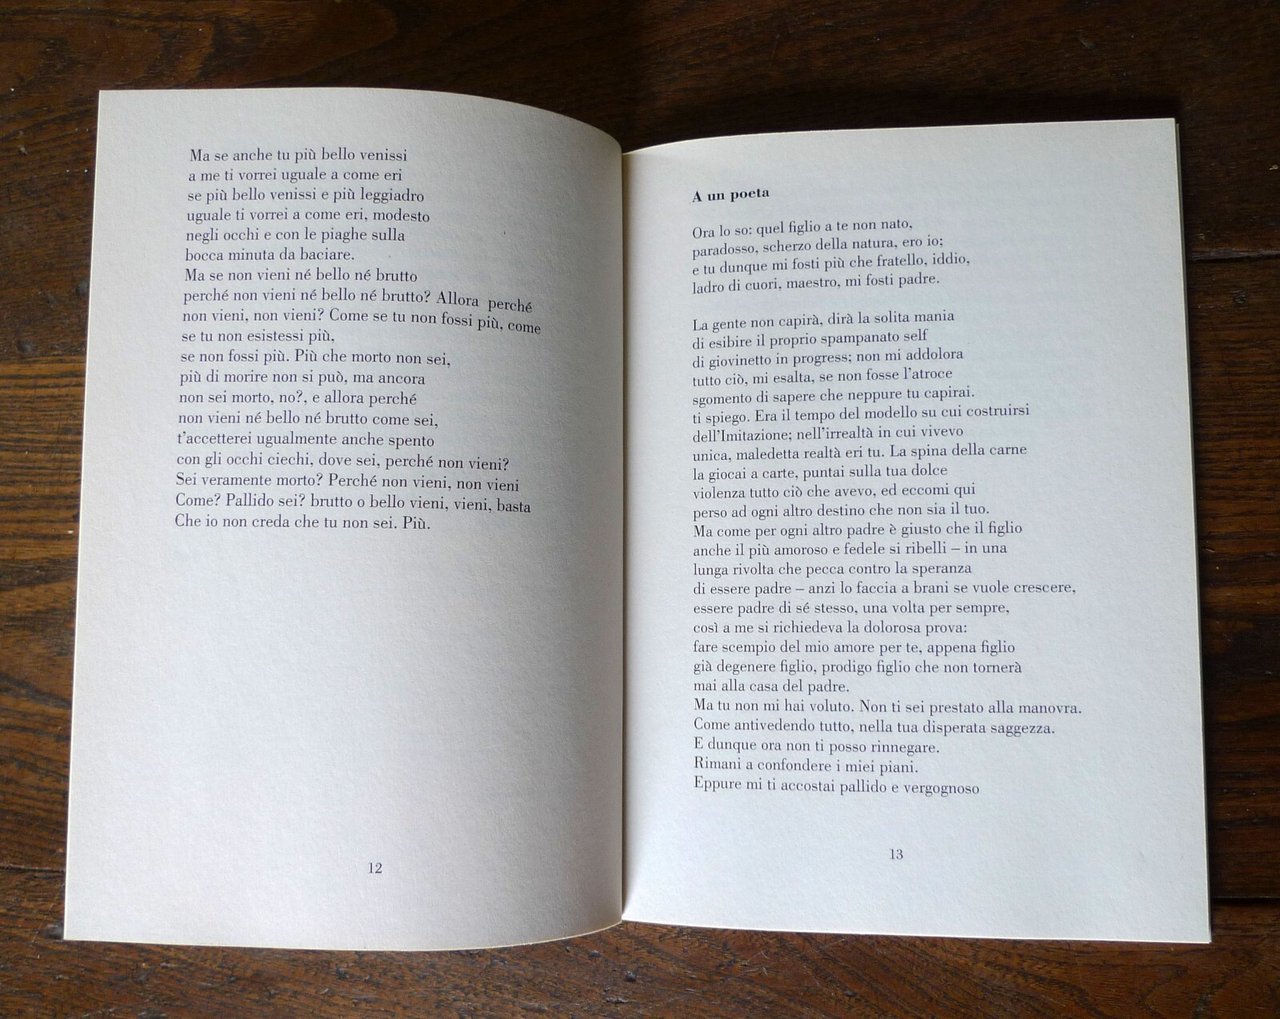 Ma se anche tu più bello venissi
a me ti vorrei uguale a come eri
se più bello venissi e più leggiadro
uguale ti vorrei a come eri, modesto
negli occhi e con le piaghe sulla
bocca minuta da baciare.
Ma se non vieni né bello né brutto
perché non vieni né bello né brutto? Allora perché
non vieni, non vieni? Come se tu non fossi più, come
se tu non esistessi più,
se non fossi più. Più che morto non sei,
più di morire non si può, ma ancora
non sei morto, no?, e allora perché
non vieni né bello né brutto come sei,
t'accetterei ugualmente anche spento
con gli occhi ciechi, dove sei, perché non vieni?
Sei veramente morto? Perché non vieni, non vieni
Come? Pallido sei? brutto o bello vieni, vieni, basta
Che io non creda che tu non sei. Più.
12
A un poeta
Ora lo so: quel figlio a te non nato,
paradosso, scherzo della natura, ero io;
e tu dunque mi fosti più che fratello, iddio,
ladro di cuori, maestro, mi fosti padre.
La gente non capirà, dirà la solita mania
di esibire il proprio spampanato self
di giovinetto in progress; non mi addolora
tutto ciò, mi esalta, se non fosse l'atroce
sgomento di sapere che neppure tu capirai.
ti spiego. Era il tempo del modello su cui costruirsi
dell'Imitazione; nell'irrealtà in cui vivevo
unica, maledetta realtà eri tu. La spina della carne
la giocai a carte, puntai sulla tua dolce
violenza tutto ciò che avevo, ed eccomi qui
perso ad ogni altro destino che non sia il tuo.
Ma come per ogni altro padre è giusto che il figlio
anche il più amoroso e fedele si ribelli – in una
lunga rivolta che pecca contro la speranza
di essere padre – anzi lo faccia a brani se vuole crescere,
essere padre di sé stesso, una volta per sempre,
così a me si richiedeva la dolorosa prova:
fare scempio del mio amore per te, appena figlio
già degenere figlio, prodigo figlio che non tornerà
mai alla casa del padre.
Ma tu non mi hai voluto. Non ti sei prestato alla manovra.
Come antivedendo tutto, nella tua disperata saggezza.
E dunque ora non ti posso rinnegare.
Rimani a confondere i miei piani.
Eppure mi ti accostai pallido e vergognoso
13